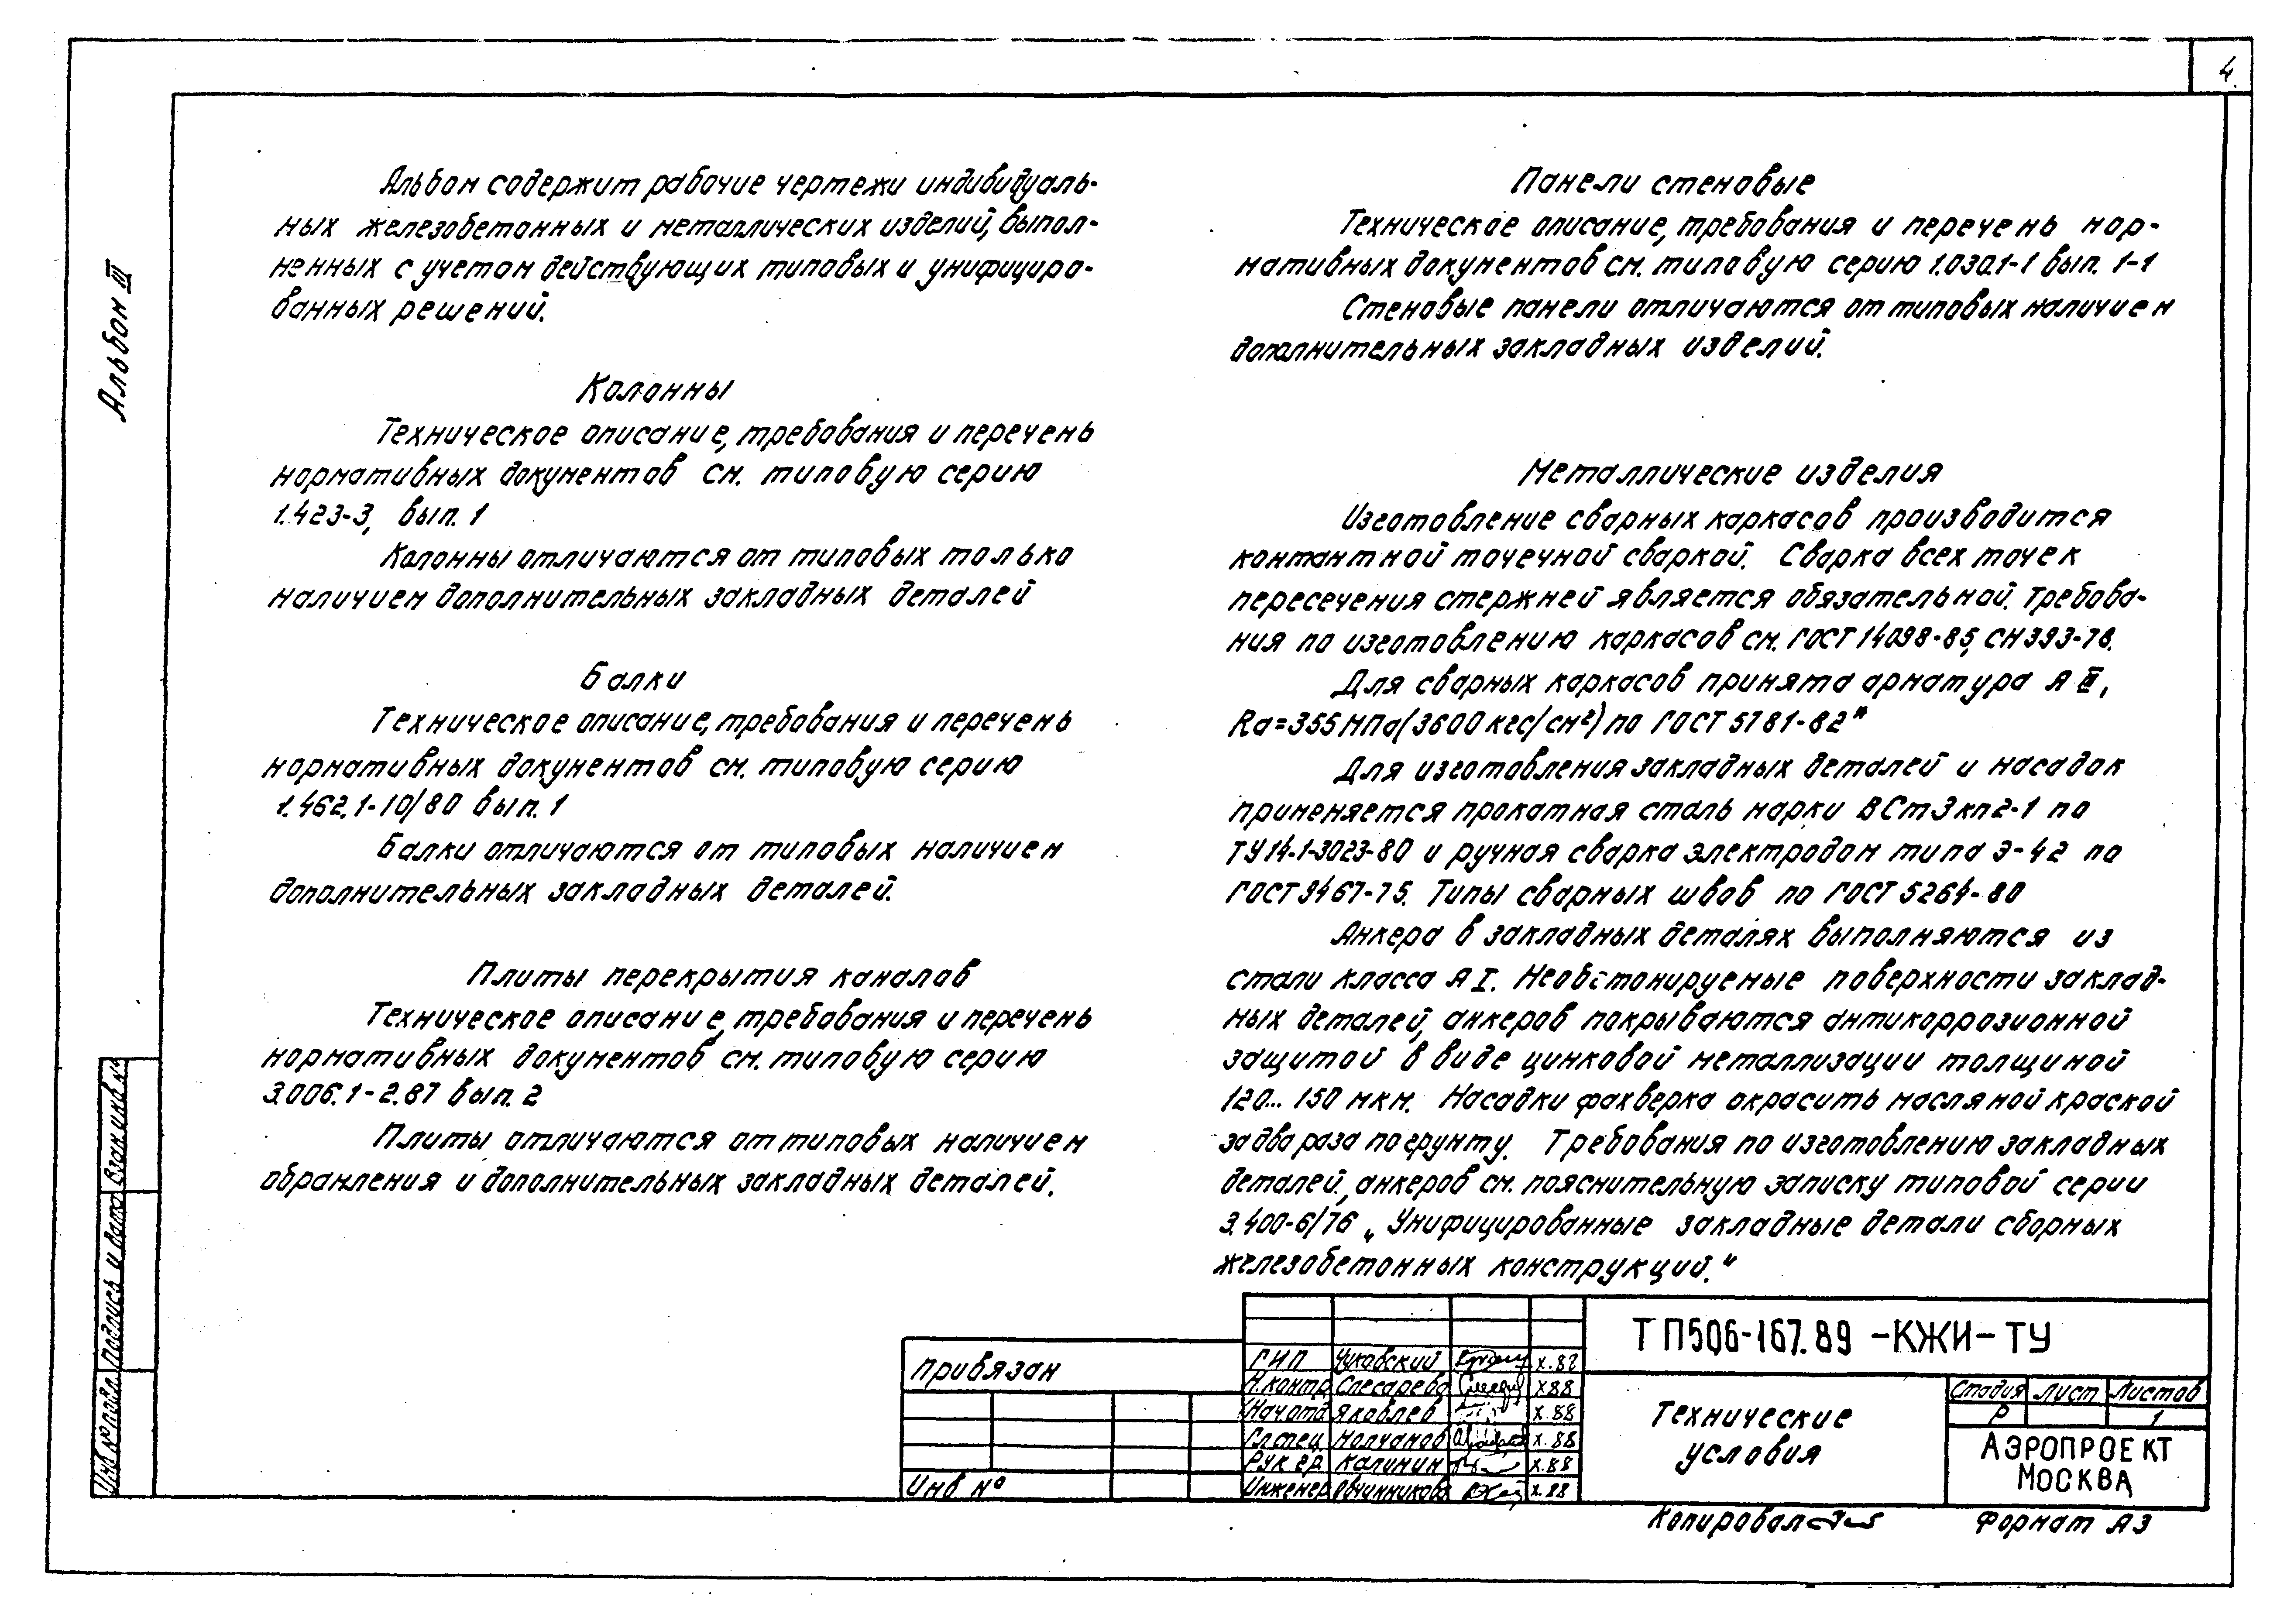 4
Альбом III
Альбом содержит рабочие чертежи индивидуаль-
ных железобетонных и металлических изделий, выпол-
ненных с учетом действующих типовых и унифициро-
ванных решений.
Колонны
Техническое описание, требования и перечень
нормативных документов см. типовую серию
1.423-3, вып. 1
Колонны отличаются от типовых только
наличием дополнительных закладных деталей
Балки
Техническое описание, требования и перечень
нормативных документов см. типовую серию
1.462.1-10/80 вып. 1
Балки отличаются от типовых наличием
дополнительных закладных деталей.
Плиты перекрытия каналов
Техническое описание, требования и перечень
нормативных документов см. типовую серию
3.006.1-2.87 вып. 2
Плиты отличаются от типовых наличием
обрамления и дополнительных закладных деталей.
Панели стеновые
Техническое описание, требования и перечень нор-
мативных документов см. типовую серию 1.030.1-1 вып. 1-1
Стеновые панели отличаются от типовых наличием
дополнительных закладных изделий.
Металлические изделия
Изготовление сварных каркасов производится
контактной точечной сваркой. Сварка всех точек
пересечения стержней является обязательной. Требова-
ния по изготовлению каркасов см. ГОСТ 14098-85, СН 393-78.
Для сварных каркасов принята арматура А III,
Ra=355 МПа (3600 кгс/см²) по ГОСТ 5781-82*
Для изготовления закладных деталей и насадок
применяется прокатная сталь марки ВСт3кп2-1 по
ТУ 14-1-3023-80 и ручная сварка электродом типа Э-42 по
ГОСТ 9467-75. Типы сварных швов по ГОСТ 5264-80
Анкера в закладных деталях выполняются из
стали класса А I. Необетонируемые поверхности заклад-
ных деталей, анкеров покрываются антикоррозионной
защитой в виде цинковой металлизации толщиной
120... 150 мкм. Насадки фахверка окрасить масляной краской
за два раза по грунту. Требования по изготовлению закладных
деталей, анкеров см. пояснительную записку типовой серии
3.400-6/76 „Унифицированные закладные детали сборных
железобетонных конструкций."
Взам инв №
Подпись и дата
Инв № подл.
Привязан
Инв №
ГИП Чуковский Х.88
Н.контр Слесарева Х88
Нач отд Яковлев Х.88
Гл спец Молчанов Х.88
Рук гр Калинин Х.88
Инженер Овчинникова Х.88
ТП506-167.89 -КЖИ-ТУ
Технические
условия
Стадия Лист Листов
Р 1
АЭРОПРОЕКТ
МОСКВА
Копировал
Формат А3